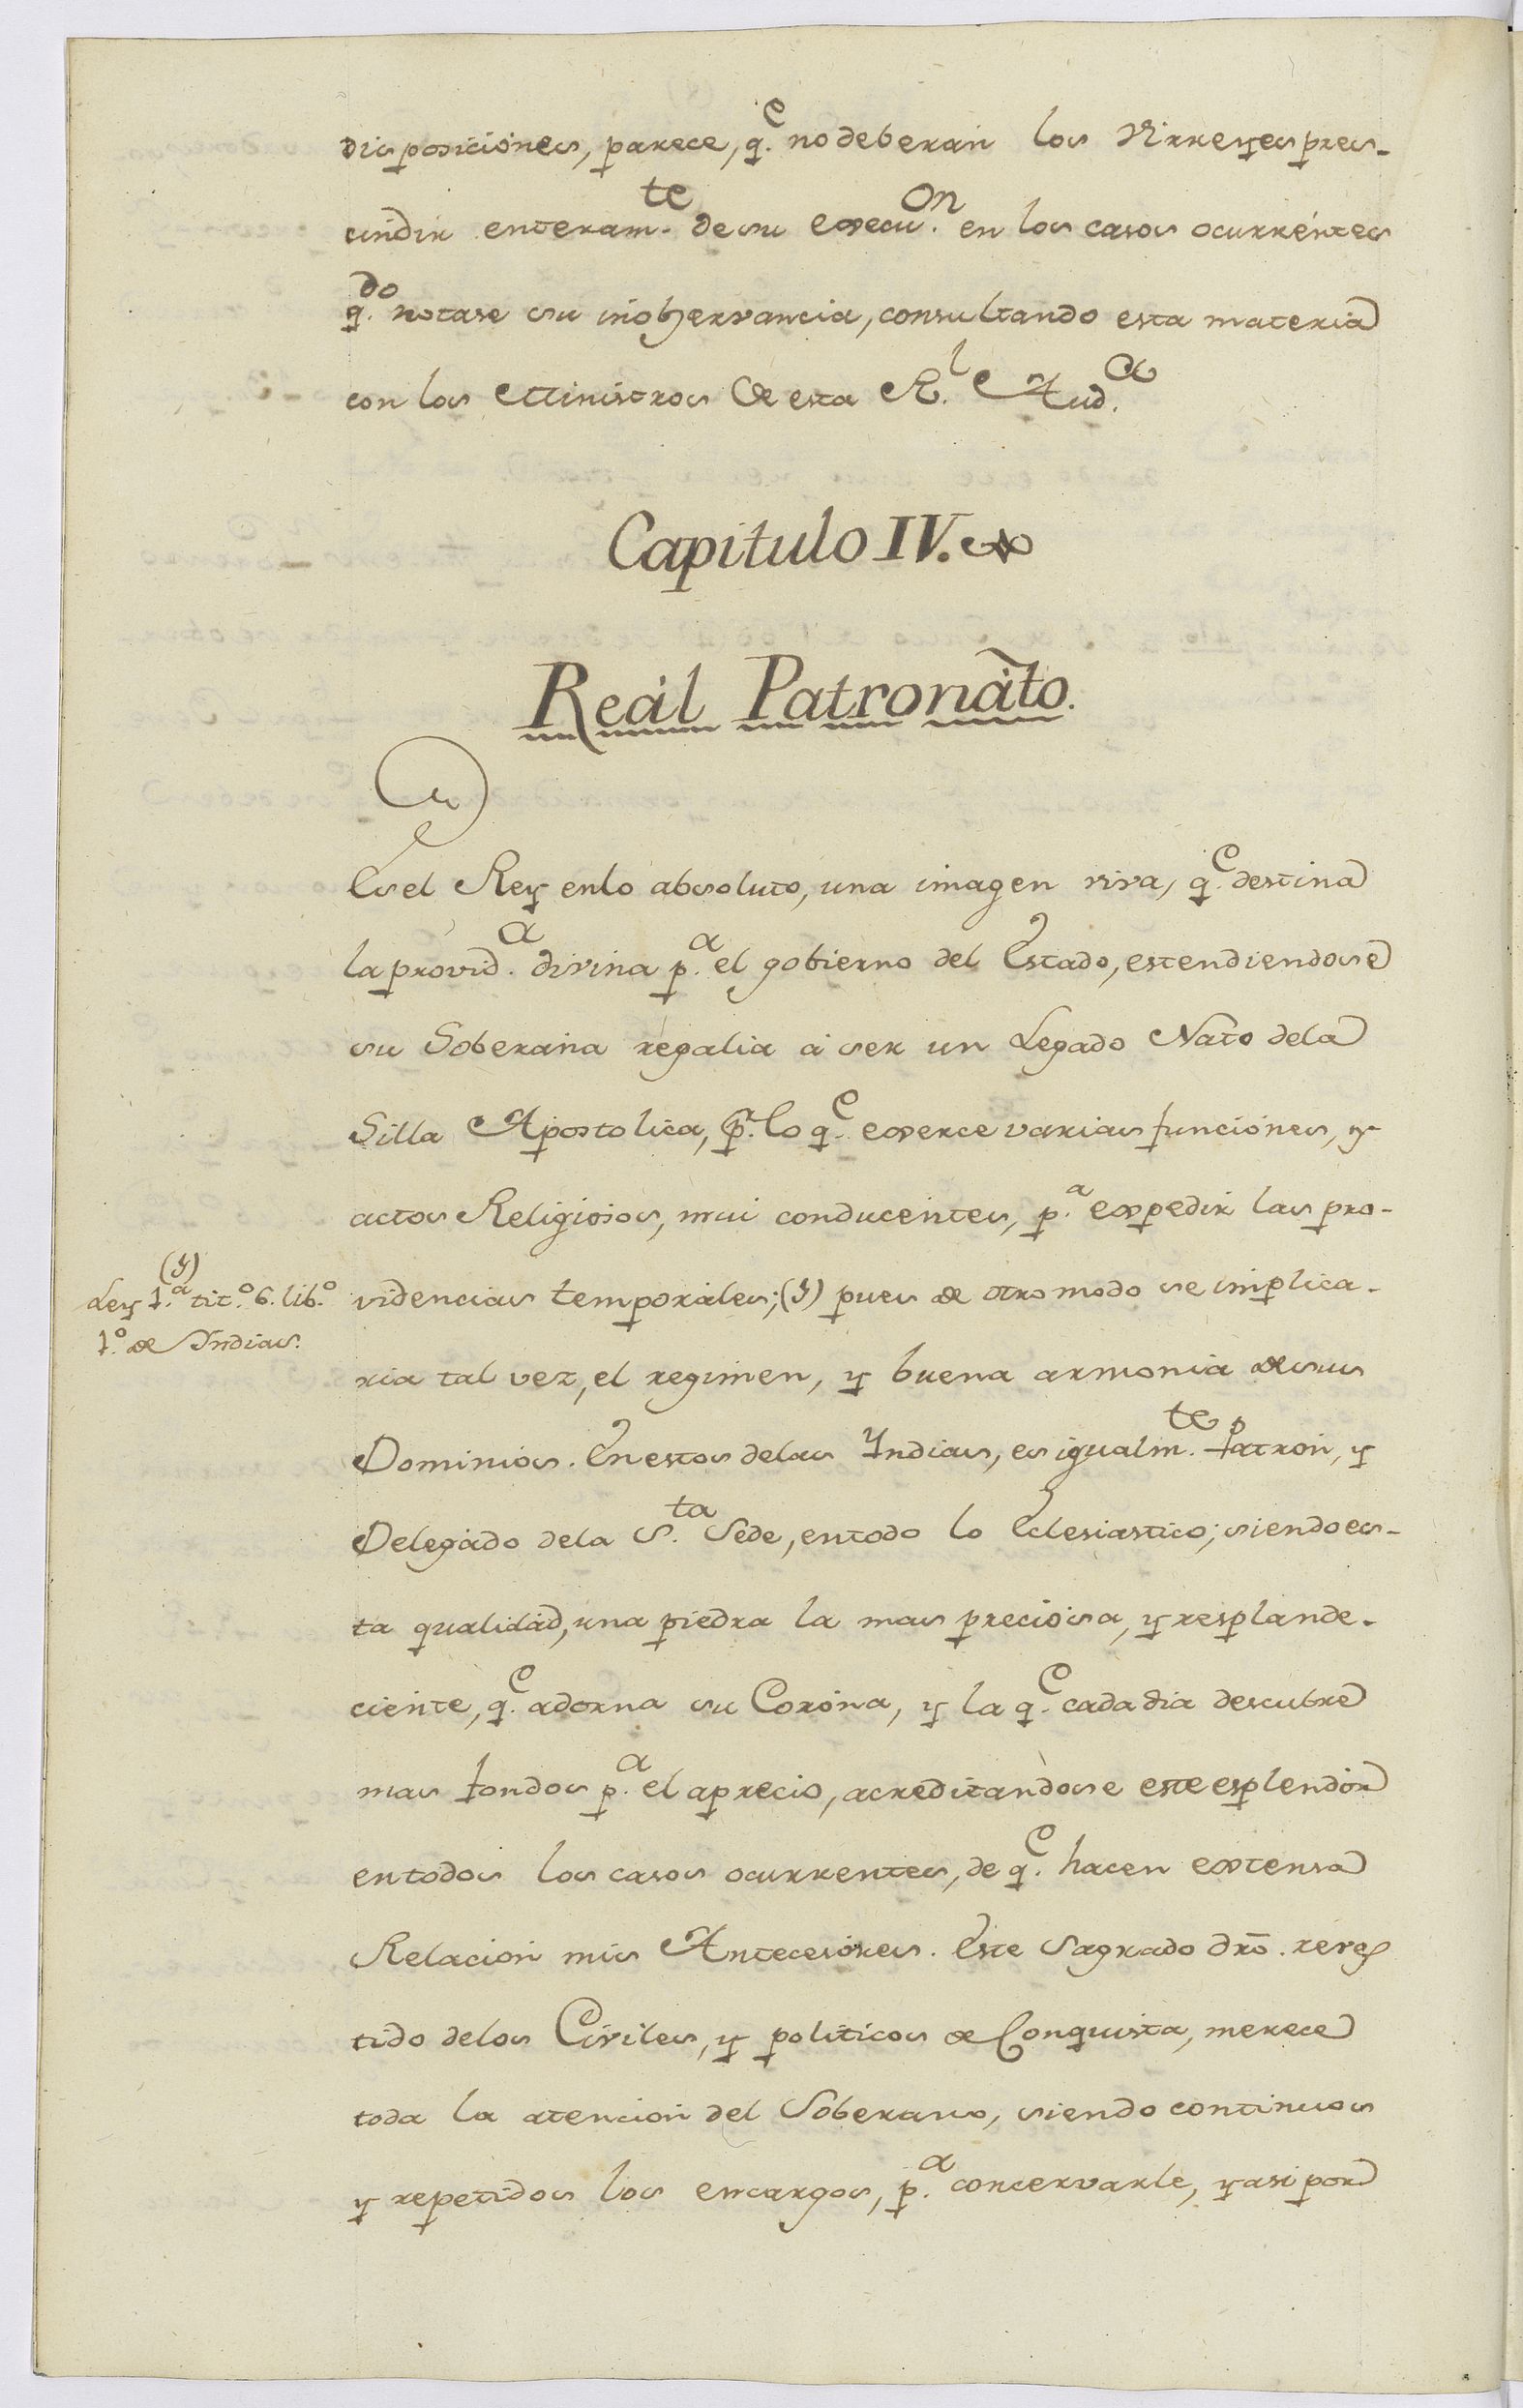 disposiciones, parece, q.e no deberán los Virreyes pres-
cindir enteram.te de su execu.on en los casos ocurrentes
q.do notase su inobservancia, consultando esta materia
con los Ministros de esta R.l Aud.a
Capitulo IV.
Reál Patronáto.
Es el Rey en lo absoluto, una imagen viva, q.e destina
la provid.a divina p.a el gobierno del Estado, estendiendose
su Soberana regalia á ser un Legado Nato dela
Silla Apostolica, p.r lo q.e exerce varias funciones, y
actos Religiosos, mui conducentes, p.a expedir las pro-
(y)
Ley 1.a tit.o 6. lib.o
1.o de Indias.
videncias temporales; (y) pues de otro modo se implica-
ria tal vez, el regimen, y buena armonia de sus
Dominios. En estos delas Yndias, es igualm.te Patron, y
Delegado dela S.ta Sede, entodo lo Eclesiastico; siendo es-
ta qualidad, una piedra la mas preciosa, y resplande-
ciente, q.e adorna su Corona, y la q.e cada dia descubre
mas fondos p.a el aprecio, acreditandose este esplendor
entodos los casos ocurrentes, de q.e hacen extensa
Relacion mis Antecesores. Este Sagrado dro. reves
tido delos Civiles, y politicos de Conquista, merece
toda la atencion del Soberano, siendo continuos
y repetidos los encargos, p.a concervarle, y asi por